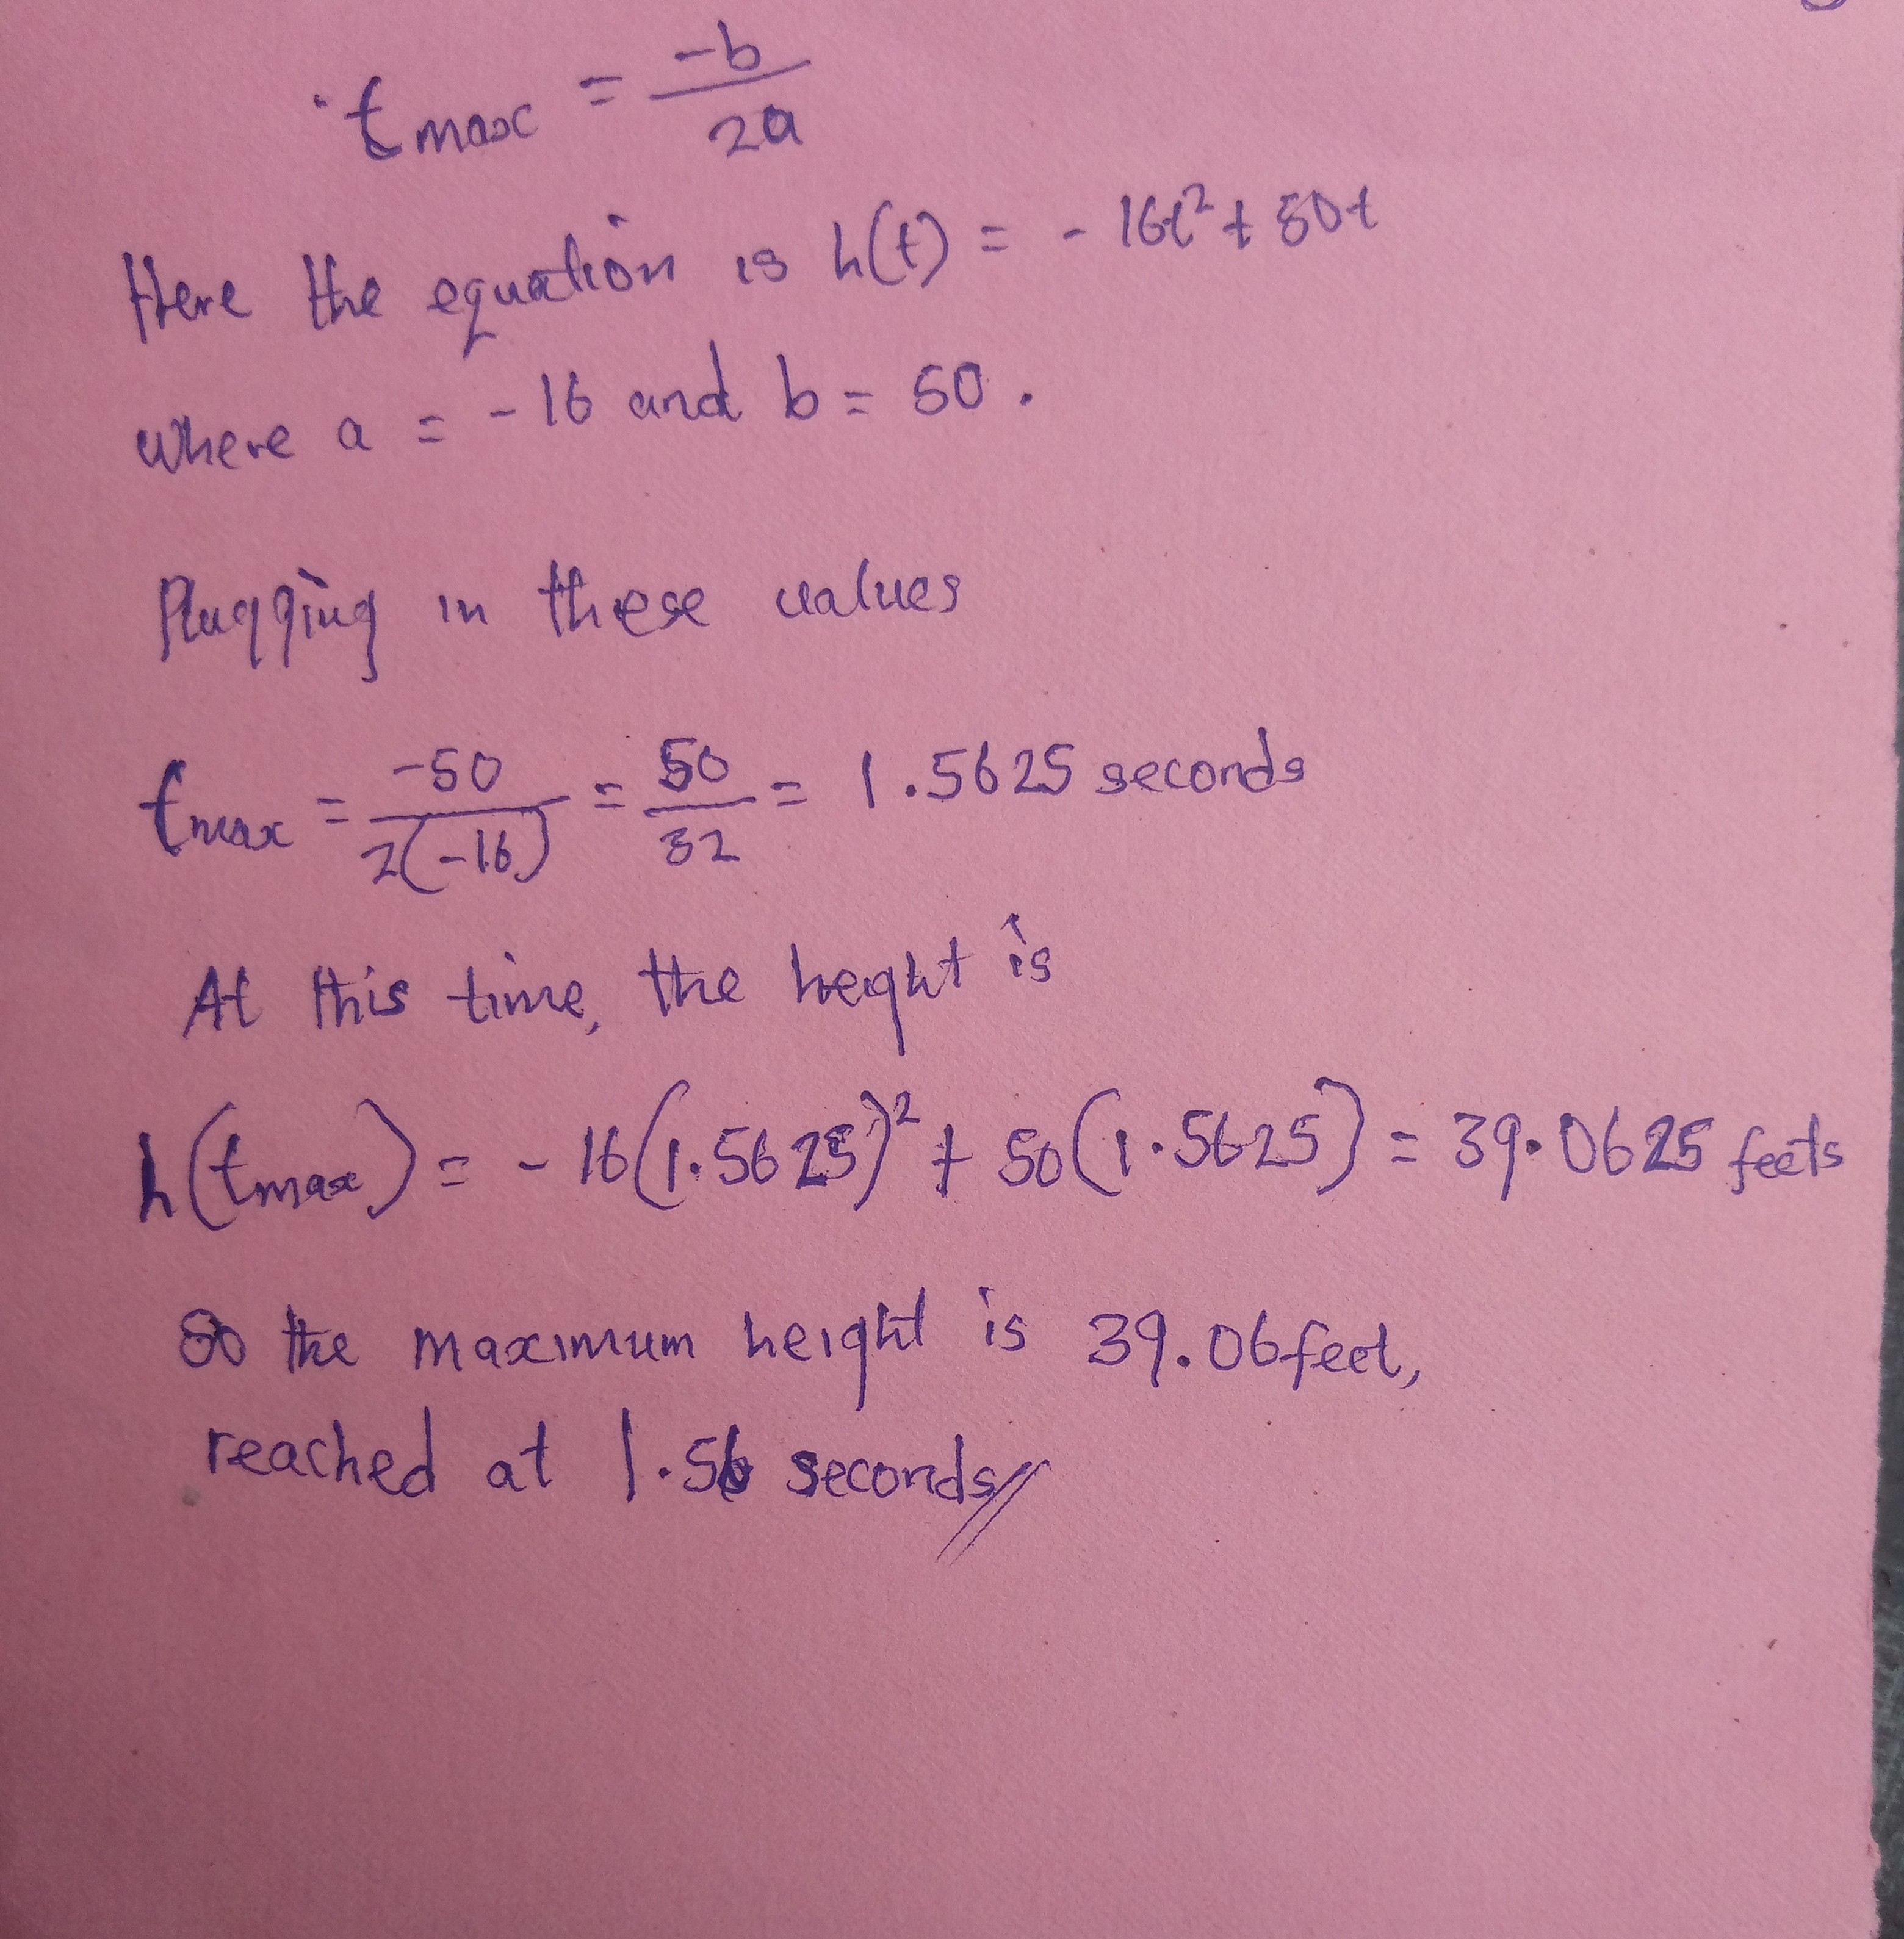 t max = -b / 2a
Here the equation is h(t) = - 16t² + 50t
where a = - 16 and b = 50.
Plugging in these values
t max = -50 / 2(-16) = 50 / 32 = 1.5625 seconds
At this time, the height is
h(t max) = - 16(1.5625)² + 50(1.5625) = 39.0625 feets
So the maximum height is 39.06 feet,
reached at 1.56 seconds//